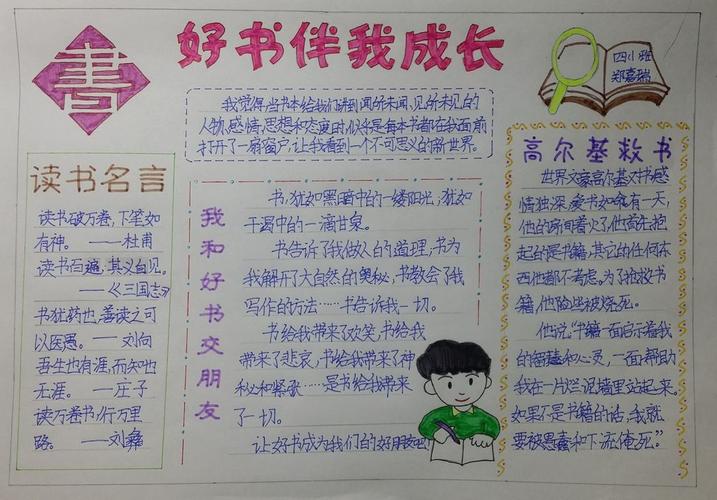 書
好书伴我成长
四小班
郑嘉瑞
我觉得,当书本给我们讲到闻所未闻,见所未见的
人物、感情、思想和态度时,似乎是每本书都在我面前
打开了一扇窗户,让我看到一个不可思议的新世界。
读书名言
读书破万卷,下笔如
有神。 ——杜甫
读书百遍,其义自见。
——《三国志》
书犹药也,善读之可
以医愚。——刘向
吾生也有涯,而知也
无涯。——庄子
读万卷书,行万里
路。 ——刘彝
我和好书交朋友
书,犹如黑暗中的一缕阳光,犹如
干渴中的一滴甘泉。
书告诉了我做人的道理,书为
我解开了大自然的奥秘,书教会了我
写作的方法……书告诉我一切。
书给我带来了欢笑,书给我
带来了悲哀,书给我带来了神
秘和紧张……是书给我带来
了一切。
让好书成为我们的好朋友吧!
高尔基救书
世界文豪高尔基对书感
情独深,爱书如命,有一天,
他的房间着火了,他首先抱
起的是书籍,其它的任何东
西他都不考虑。为了抢救书
籍,他险些被烧死。
他说:"书籍一面启示着我
的智慧和心灵,一面帮助
我在一片烂泥塘里站起来。
如果不是书籍的话,我就
要被愚蠢和下流淹死。"